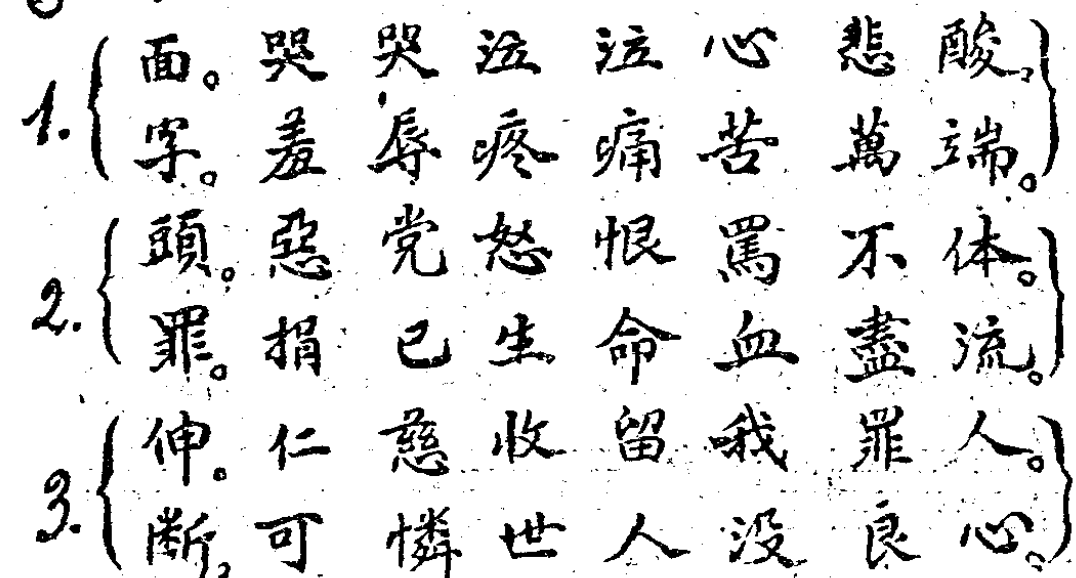 1. 面。哭哭泣泣心悲酸,
字。羞辱疼痛苦萬端。
2. 頭。惡党怒恨罵不体。
罪。捐已生命血盡流。
3. 伸。仁慈收留哦罪人。
断,可憐世人没良心。